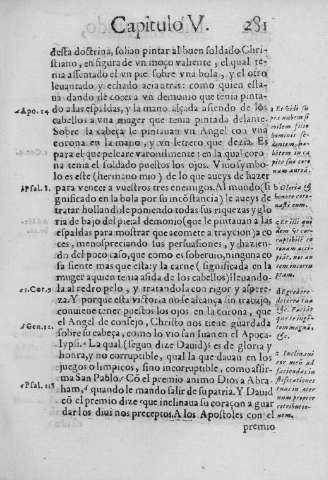 Capitulo V. 281
desta doctrina, solian pintar al buen soldado Chri-
stiano, en figura de vn moço valiente, el qual te-
nia assentado el vn pie sobre vna bola, y el otro
leuantado y echado azia atras: como quien esta-
ua dando de coces a vn demonio que tenia pinta-
do a las espaldas, y la mano alçada asiendo de los
cabellos a vna muger que tenia pintada delante.
Sobre la cabeça le pintauan vn Angel con vna
corona en la mano, y vn letrero que dezia. Es
para el que peleare varonilmente: en la qual coro-
na tenia el soldado puestos los ojos. Y no symbo-
lo es este (hermano mio) de lo que aueys de hazer
para vencer a vuestros tres enemigos. Al mundo (si
gnificado en la bola por su incõstancia) le aueys de
tratar hollandole poniendo todas sus riquezas y glo
ria de baxo del pie: al demonio (que le pintauan a las
espaldas para mostrar que acomete a traycion) a co
ces, menospreciando sus persuasiones, y hazien-
do del poco caso, que como es soberuio, ninguna co
sa siente mas que esta: y la carne (significada en la
muger a quien tenia asida de los cabellos) lleuando-
la al redro pelo, y tratandola con rigor y aspere-
za. Y porque esta victoria no se alcança sin trabajo,
conuiene tener puestos los ojos en la corona, que
el Angel de consejo, Christo nos tiene guardada
sobre su cabeça, como lo vio san Iuan en el Apoca-
lypsi. La qual (segun dize Dauid) es de gloria y
honra, y no corruptible, qual la que dauan en los
juegos olimpicos, sino incorruptible, como affir-
ma San Pablo. Cõ el premio animo Dios a Abra
ham, quando le mando salir de su patria. Y Dauid
cõ el premio dize que inclinaua su coraçon a guar
dar los diuinos preceptos. A los Apostoles con el
premio
Apo. 14
Psal. 8.
1. Cor. 9
Gen. 12.
Psal. 118
Gloria &
honore coro-
nasti eum.
Inclinaui
cor meũ ad
faciendas iu
stificationes
tuas in aeter
num propter
retributio-
nem.